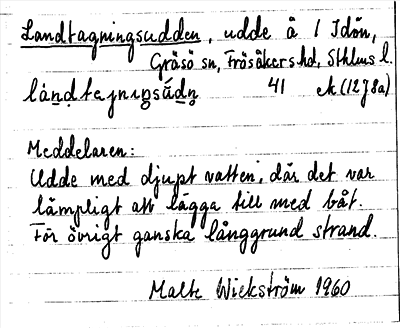 Landtagningsudden, udde å / Idön,
Gräsö sn, Frösåkers hd, Sthlms l.
41 ek (12 J 8a)
Meddelaren:
Udde med djupt vatten, där det var
lämpligt att lägga till med båt.
För övrigt ganska långgrund strand.
Malte Wickström 1960